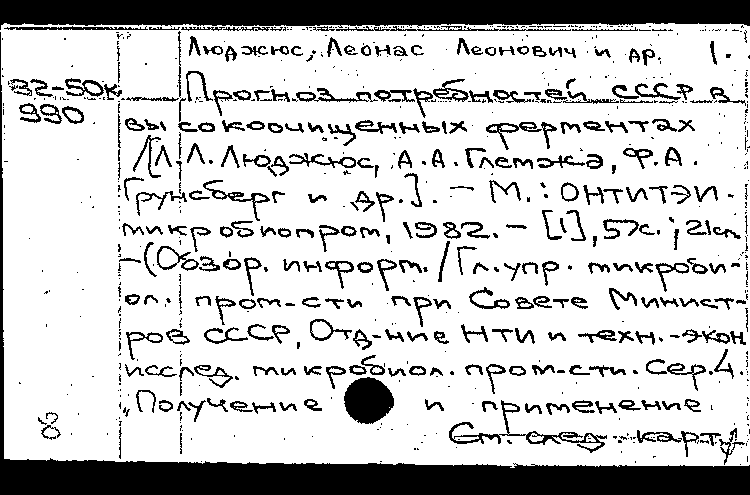 Люджюс, Леонас Леонович и др. 1.
82-50к Прогноз потребностей СССР в
990 высокоочищенных ферментах
/[Л.Л. Люджюс, А.А. Глемжа, Ф.А.
Грунсберг и др.]. — М.: ОНТИТЭИ-
микробиопром, 1982. — [1], 57с.; 21см.
—(Обзор. информ. / Гл. упр. микроби-
ол. пром-сти при Совете Минист-
ров СССР, Отд-ние НТИ и техн.-экон
исслед. микробиол. пром-сти. Сер. 4.
„Получение и применение
См. след. карту